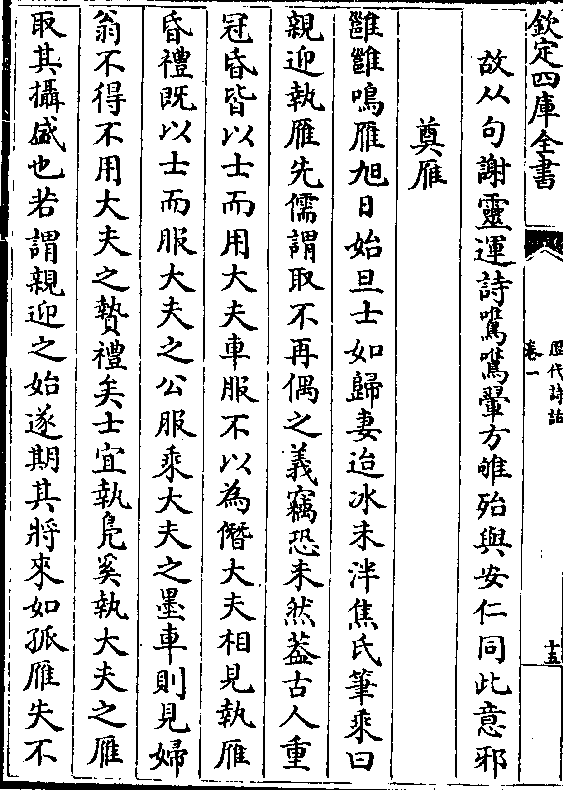 欽定四庫全書
歷代詩話
卷一
十五
故从句謝靈運詩鷕鷕翬方雊殆與安仁同此意邪
奠雁
雝雝鳴雁旭日始旦士如歸妻迨冰未泮焦氏筆乘曰
親迎執雁先儒謂取不再偶之義竊恐未然葢古人重
冠昏皆以士而用大夫車服不以為僭大夫相見執雁
昏禮既以士而服大夫之公服乘大夫之墨車則見婦
翁不得不用大夫之贄禮矣士宜執鳧奚執大夫之雁
取其攝盛也若謂親迎之始遂期其將來如孤雁失不